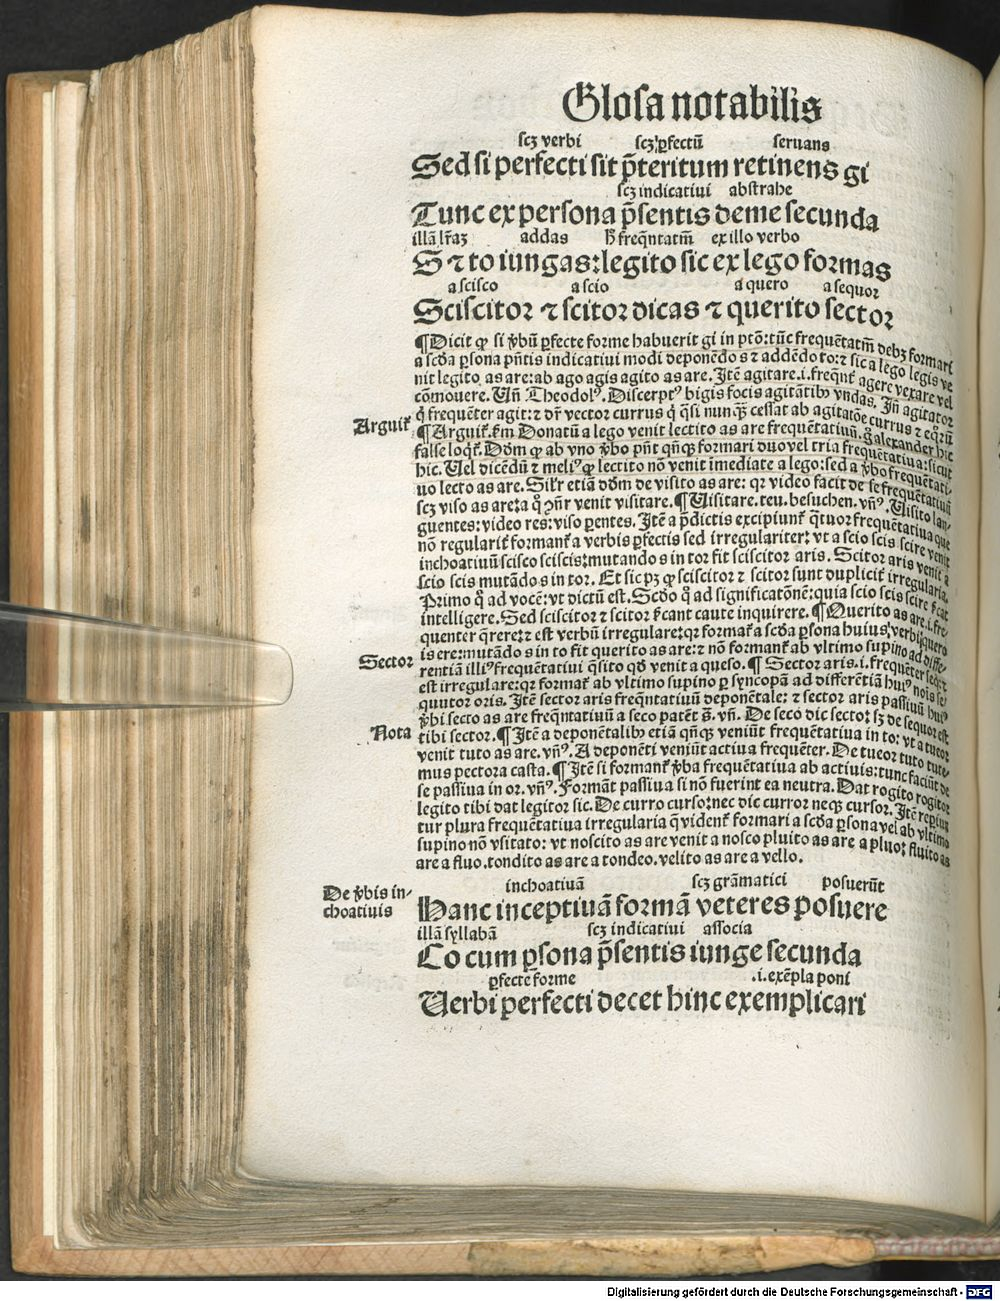 Glosa notabilis
scꝫ verbi scꝫ ꝑfectū seruans
Sed si perfecti sit p̄teritum retinens gi
scꝫ indicatiui abstrahe
Tunc ex persona p̄sentis deme secunda
illā lr̄aꝫ addas ex illo verbo
S ⁊ to iungas: legito sic ex lego formas
a scisco a scio a quero a sequor
Sciscitor ⁊ scitor dicas ⁊ querito sector
¶ Dicit ꝙ si v̄bū ꝑfecte forme habuerit gi in p̄to: tūc frequētatiū debꝫ formari
a scd̄a ꝑsona pn̄tis indicatiui modi deponēdo s ⁊ addēdo to: ⁊ sic a lego legis ve
nit legito as are: ab ago agis agito as are. Itē agitare .i. freqn̄t̄ agere vexare vel
cōmouere. Vn̄ Theodolꝰ. Discerptꝰ bigis focis agitātibꝫ vndas. Jn̄ agitator
q̄ frequēter agit: ⁊ dr̄ vector currus q̇ q̄si nunqꝫ cessat ab agitatōe currus ⁊ eq̄rū
Arguit̄
¶ Arguit̄. km̄ Donatū a lego venit lectito as are frequētatiuū. g̊ alexander hic
false loqt̄. Dd̄m ꝙ ab vno v̄bo pn̄t qn̄qꝫ formari duo vel tria frequētatiua: sicut
hic. Vel dicēdū ⁊ meliꝰ ꝙ lectito nō venit īmediate a lego: sed a v̄bo frequētati-
uo lecto as are. Silr̄ etiā dd̄m de visito as are: qꝛ video facit de se frequētatiuū
scꝫ viso as are: a q̊ ꝯn̄r venit visitare. ¶ Visitare. teu. besuchen. vn̄ꝰ. Visito lan-
guentes: video res: viso ꝑentes. Itē a p̄dictis excipiunt̄ q̄tuor frequētatiua que
nō regularit̄ formant̄ a verbis ꝑfectis sed irregulariter: vt a scio scis scire venit
inchoatiuū scisco sciscis: mutando s in tor fit sciscitor aris. Scitor aris venit a
scio scis mutādo s in tor. Et sic pꝫ ꝙ sciscitor ⁊ scitor sunt duplicit̄ irregularia.
Primo q̊ ad vocē: vt dictū est. Scd̄o q̊ ad significatōnē: quia scio scis scire
intelligere. Sed sciscitor ⁊ scitor caute inquirere. ¶ Querito as are .i. fre-
quenter q̄rere: ⁊ est verbū irregulare: qꝛ format̄ a scd̄a ꝑsona huius verbi quero
Sector
is ere: mutādo s in to fit querito as are: ⁊ nō formant̄ ab vltimo supino ad diffe-
rentiā illiꝰ frequētatiui q̄sito qd̄ venit a queso. ¶ Sector aris .i. frequēter seq̄: ⁊
est irregulare: qꝛ format̄ ab vltimo supino ꝑ syncopā ad differētiā huiꝰ nois se
quutor oris. Itē sector aris freqn̄tatiuū deponētale: ⁊ sector aris passiuū huiꝰ
v̄bi secto as are freqn̄tatiuū a seco patēt vn̄. De seco dic secto: sꝫ de sequor est
Nota
tibi sector. ¶ Itē a deponētalibꝫ etiā qn̄qꝫ veniūt frequētatiua in to: vt a tutor
venit tuto as are. vn̄ꝰ. A deponēti veniūt actiua frequēter. De tueor tuto tute-
mus pectora casta. ¶ Itē si formant̄ v̄ba frequētatiua ab actiuis: tunc faciūt de
se passiua in or. vn̄ꝰ. Formāt passiua si nō fuerint ea neutra. Dat rogito rogitor
legito tibi dat legitor sic. De curro curso: nec dic curror neqꝫ cursor. Itē reperiūt
tur plura frequētatiua irregularia q̄ vident̄ formari a scd̄a ꝑsona vel ab vltimo
supino nō vsitato: vt noscito as are venit a nosco pluito as are a pluo: fluito as
are a fluo. tondito as are a tondeo. velito as are a vello.
De v̄bis in-
choatiuis
inchoatiuā scꝫ grāmatici posuerūt
Hanc inceptiuā formā veteres posuere
illā syllabā scꝫ indicatiui associa
Co cum ꝑsona p̄sentis iunge secunda
ꝑfecte forme .i. exēpla poni
Verbi perfecti decet hinc exemplicari
Digitalisierung gefördert durch die Deutsche Forschungsgemeinschaft - DFG